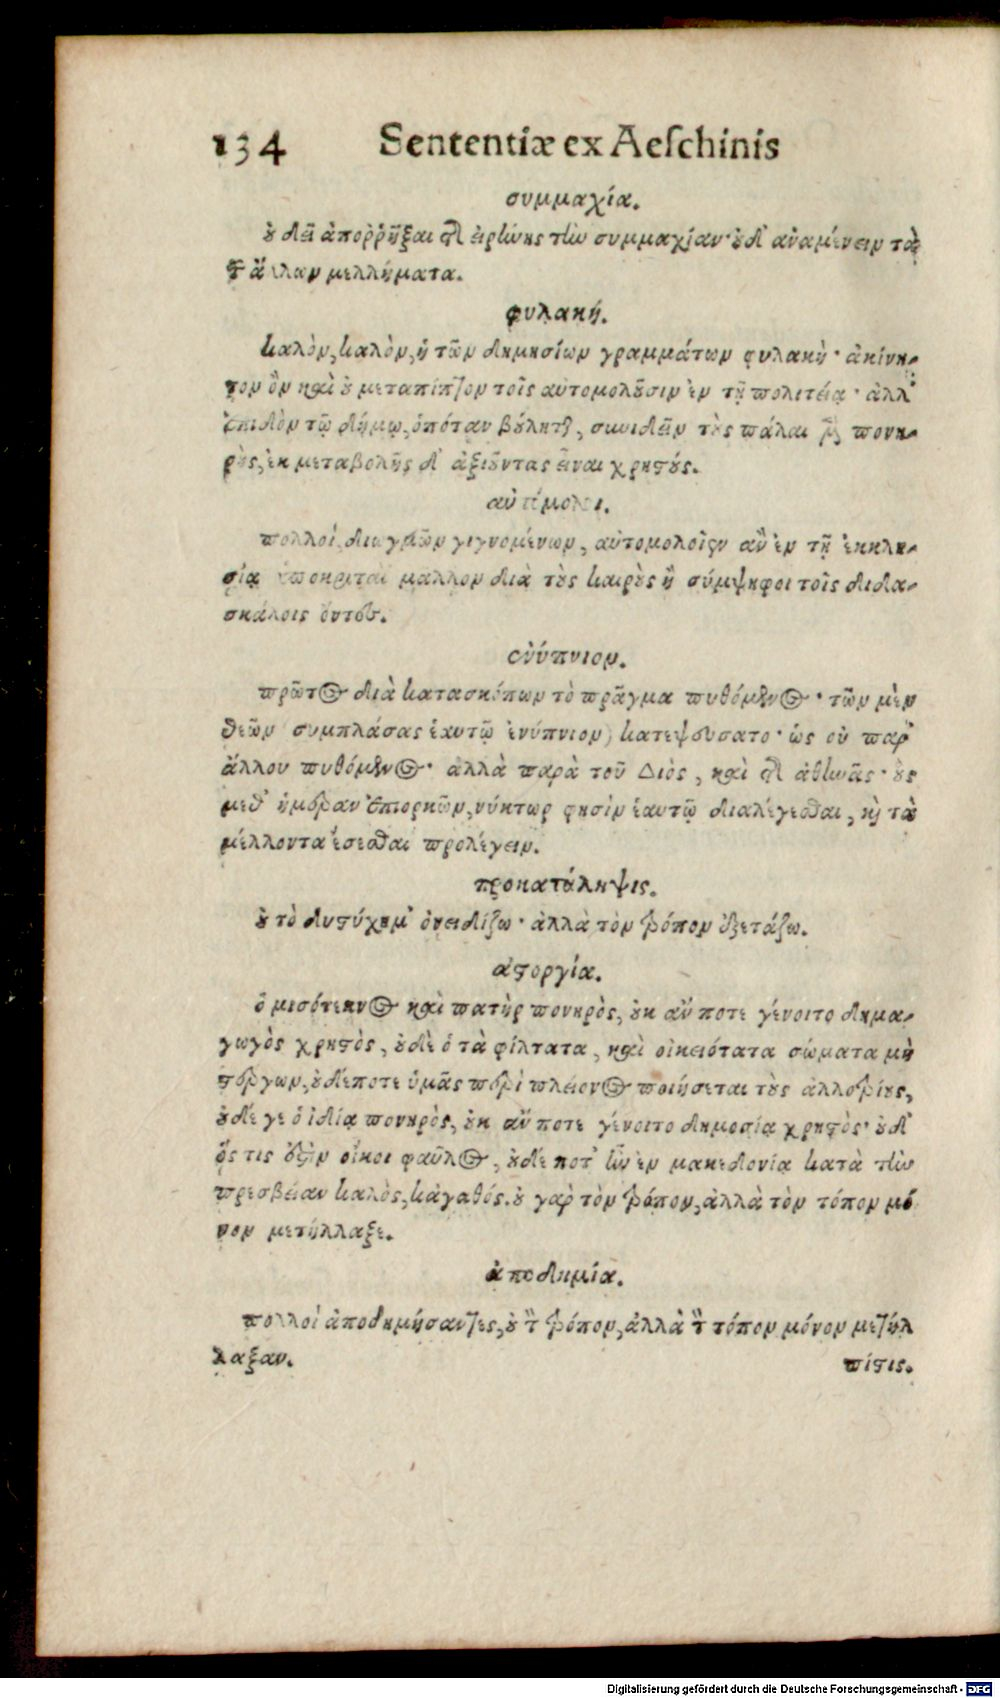 134 Sententiæ ex Aeſchinis
συμμαχία.
ȣ δεῖ ἀποῤῥῆξαι τῆς εἰρήνης τὴν συμμαχίαν· ȣδ' ἀναμένειν τὰ
τῶν ἄλλων μελλήματα.
φυλακή.
καλὸν, καλὸν, ἡ τῶν δημησίων γραμμάτων φυλακὴ· ἀκίνη-
τον ὂν καὶ ȣ μεταπίπτον τοῖς αὐτομολȣσιν ἐν τῇ πολιτείᾳ· ἀλλ'
ἐπιδὸν τῷ δήμῳ, ὁπόταν βȣληται, συνιδεῖν τȣς πάλαι μὲν πονη-
ρȣς, ἐκ μεταβολῆς δ' ἀξιȣντας εἶναι χρηϛȣς.
αὐτόμολοι.
πολλοὶ, γιγνομένων, αὐτομολοῖεν ἂν ἐν τῇ ἐκκλη-
σίᾳ μαλλον διὰ τȣς καιρȣς ἢ σύμψηφοι τοῖς διδα-
σκάλοις ὄντες.
ἐνύπνιον.
πρῶτος διὰ κατασκόπων τὸ πρᾶγμα πυθόμενος· τῶν μὲν
θεῶν συμπλάσας ἑαυτῷ ἐνύπνιον) κατεψεύσατο· ὡς οὐ παρ'
ἄλλου πυθόμενος· ἀλλὰ παρὰ τοῦ Διὸς, καὶ τῆς ἀθηνᾶς· ȣς
μεθ' ἡμέραν ἐπιορκῶν, νύκτωρ φησὶν ἑαυτῷ διαλέγεσθαι, καὶ τὰ
μέλλοντα ἔσεσθαι προλέγειν.
προκατάληψις.
ȣ τὸ δυϛύχημ' ὀνειδίζω· ἀλλὰ τὸν τρόπον ἐξετάζω.
αϛοργία.
ὁ μισότεκνος καὶ πατὴρ πονηρὸς, ȣκ ἄν ποτε γένοιτο δημα-
γωγὸς χρηϛὸς, ȣδὲ ὁ τὰ φίλτατα, καὶ οἰκειότατα σώματα μὴ
ϛέργων, ȣδέποτε ὑμᾶς περὶ πλείονος ποιήσεται τȣς ἀλλοτρίȣς,
ȣδέ γε ὁ ἰδίᾳ πονηρὸς, ȣκ ἄν ποτε γένοιτο δημοσίᾳ χρηϛὸς· ȣδ'
ὅς τις ἐϛὶν οἴκοι φαῦλος, ȣδέ ποτ' ἦν ἐν μακεδονίᾳ κατὰ τὴν
πρεσβείαν καλὸς, κἀγαθός. ȣ γαρ τὸν τρόπον, ἀλλὰ τὸν τόπον μό
νον μετήλλαξε.
ἀποδημία.
πολλοὶ ἀποδημήσαντες, ȣ τὸν τρόπον, ἀλλὰ τὸν τόπον μόνον μετήλ
λαξαν. πίϛις.
Digitalisierung gefördert durch die Deutsche Forschungsgemeinschaft - DFG